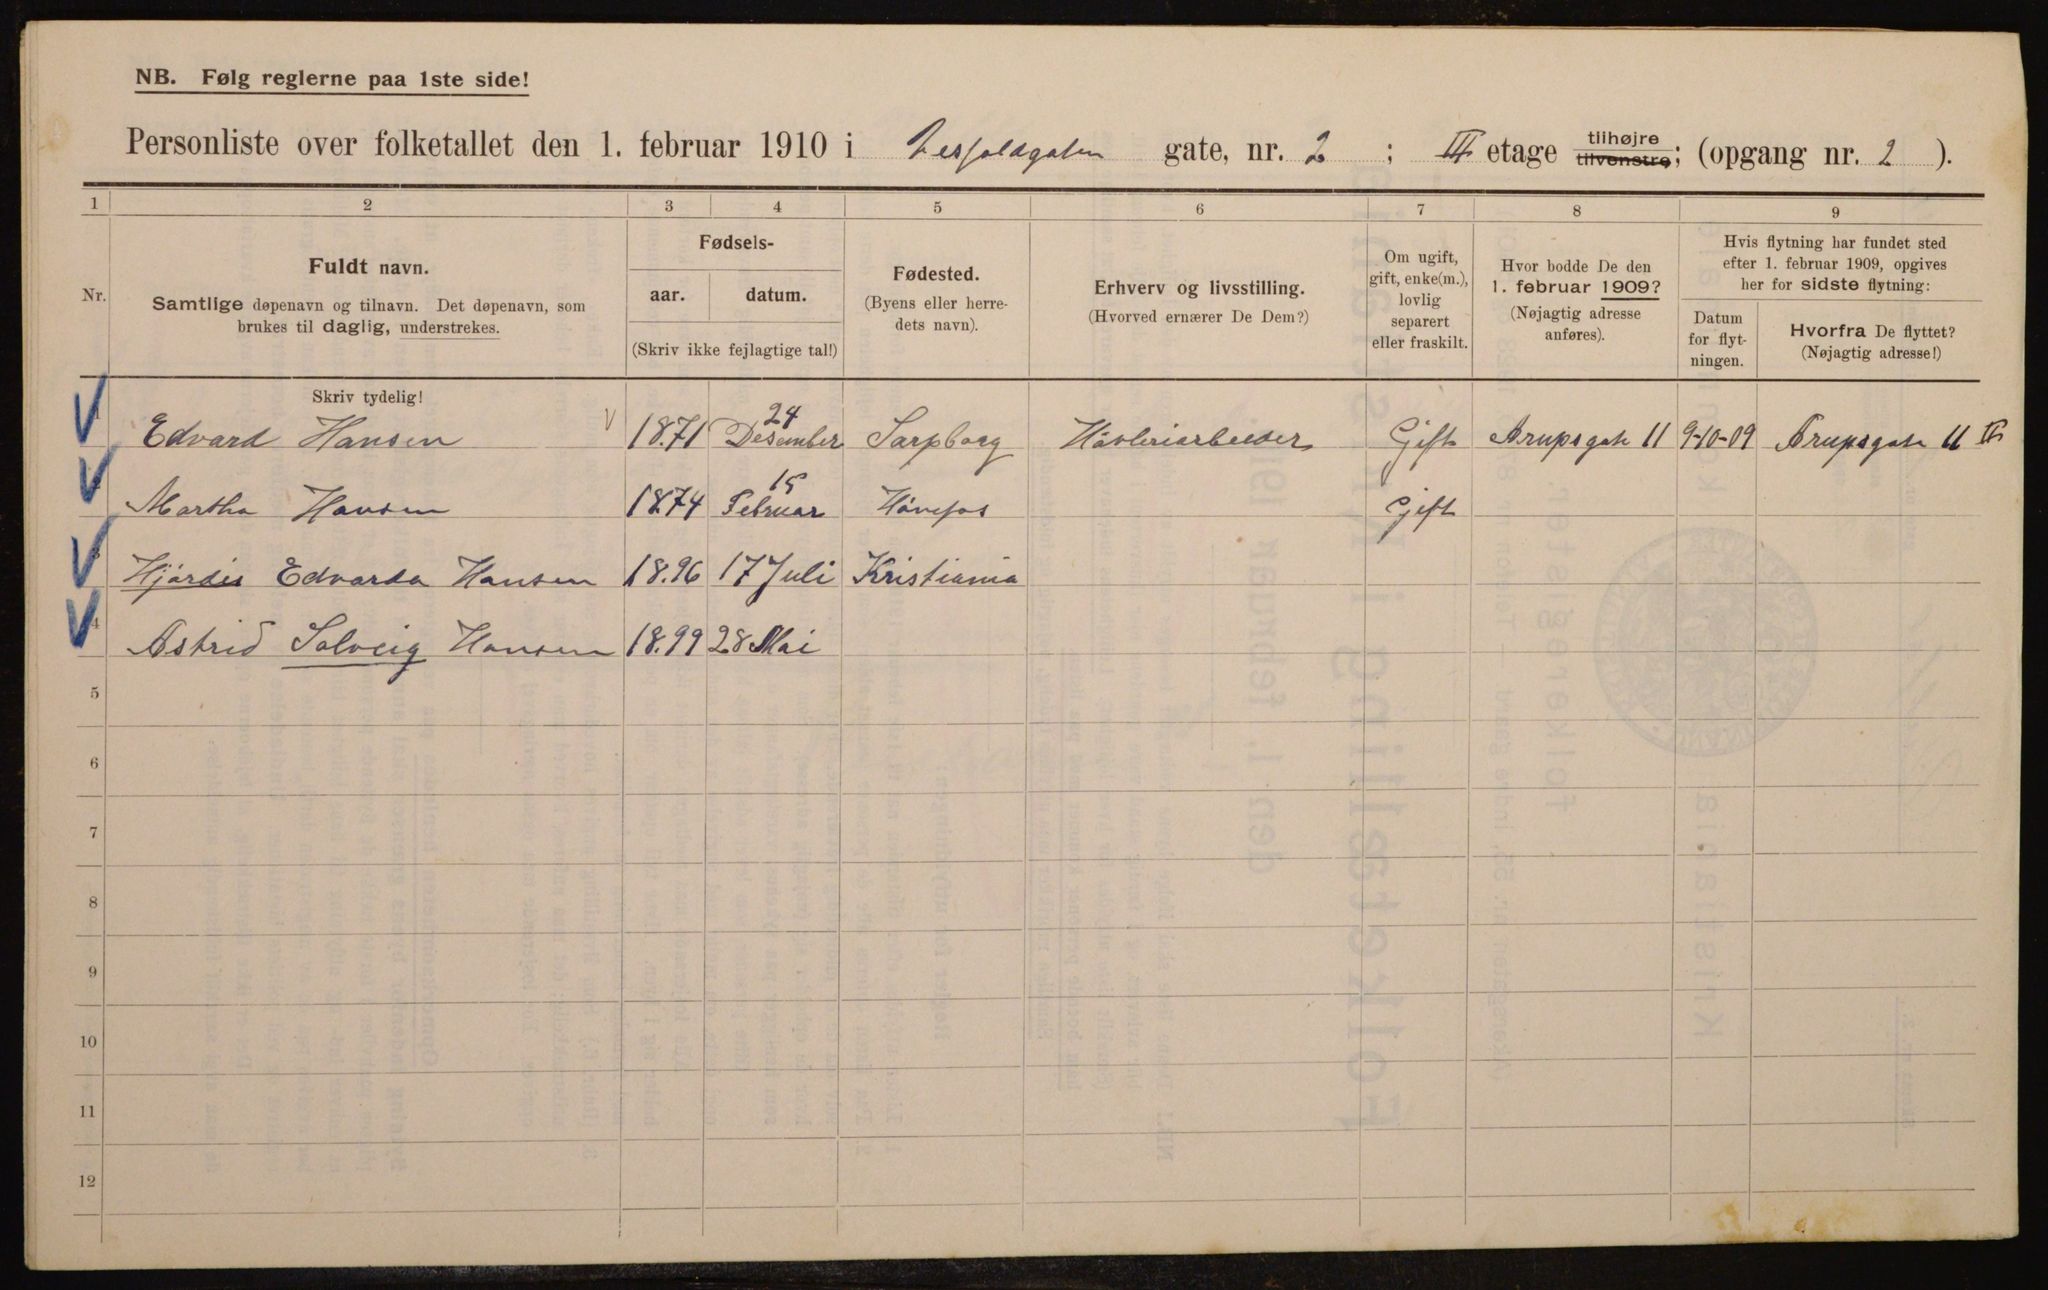 NB. Følg reglerne paa 1ste side!
Personliste over folketallet den 1. februar 1910 i Vesfoldgaten gate, nr. 2 ; III etage tilhøjre tilvenstre; (opgang nr. 2 ).
1 2 3 4 5 6 7 8 9
Nr.
Fuldt navn.
Samtlige døpenavn og tilnavn. Det døpenavn, som
brukes til daglig, understrekes.
Fødsels-
aar. datum.
(Skriv ikke fejlagtige tal!)
Fødested.
(Byens eller herre-
dets navn).
Erhverv og livsstilling.
(Hvorved ernærer De Dem?)
Om ugift,
gift, enke(m.),
lovlig
separert
eller fraskilt.
Hvor bodde De den
1. februar 1909?
(Nøjagtig adresse
anføres).
Hvis flytning har fundet sted
efter 1. februar 1909, opgives
her for sidste flytning:
Datum
for flyt-
ningen.
Hvorfra De flyttet?
(Nøjagtig adresse!)
Skriv tydelig!
Edvard Hansen 1871 24 Desember Sarpborg Høvleriarbeider Gift Arupsgate 11 9-10-09 Arupsgate 11
Martha Hansen 1874 15 Februar Hønefos Gift
3 Hjørdis Edvarda Hansen 1896 17 Juli Kristiania
4 Astrid Solveig Hansen 1899 28 Mai
5
6
7
8
9
10
11
12